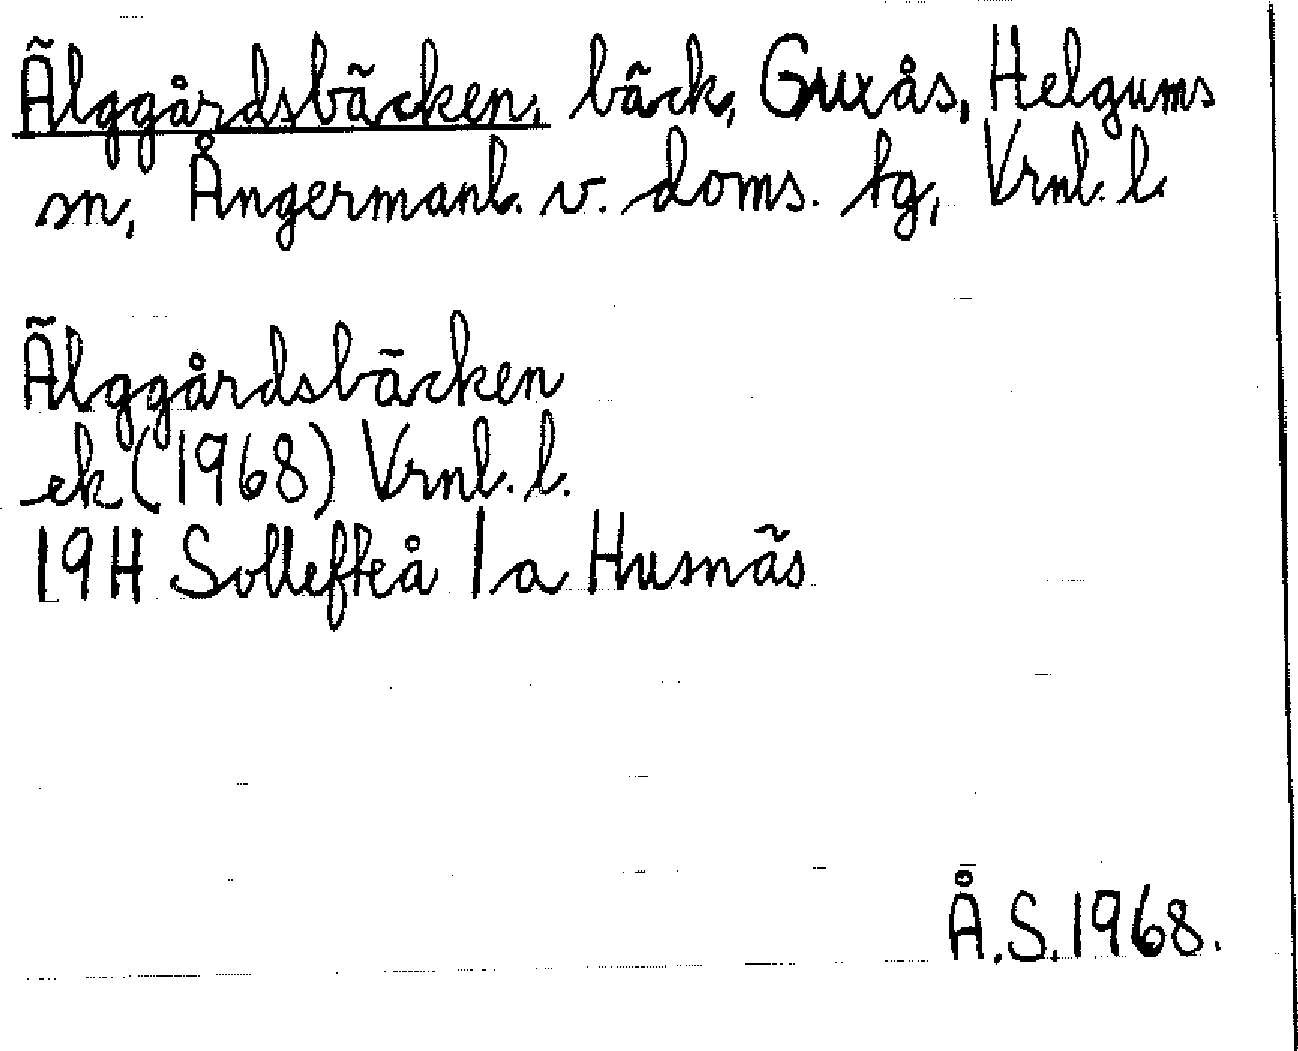 Älggårdsbäcken, bäck, Guxås, Helgums
sn, Ångermanl. v. doms. tg, Vrnl. l.
Älggårdsbäcken
ek (1968) Vrnl. l.
19H Sollefteå 1a Husnäs
Å.S. 1968.